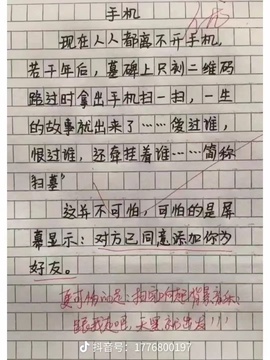 手机
现在人人都离不开手机,
若干年后，墓碑上只刻二维码
路过时拿出手机扫一扫，一生
的故事就出来了……爱过谁，
恨过谁，还牵挂着谁……简称
“扫墓”
这并不可怕，可怕的是屏
幕显示：对方已同意添加你为
好友。
更可怕的是：扫到时响起背景音乐:
跟我走吧，天亮就出发!!!
抖音号：1776800197